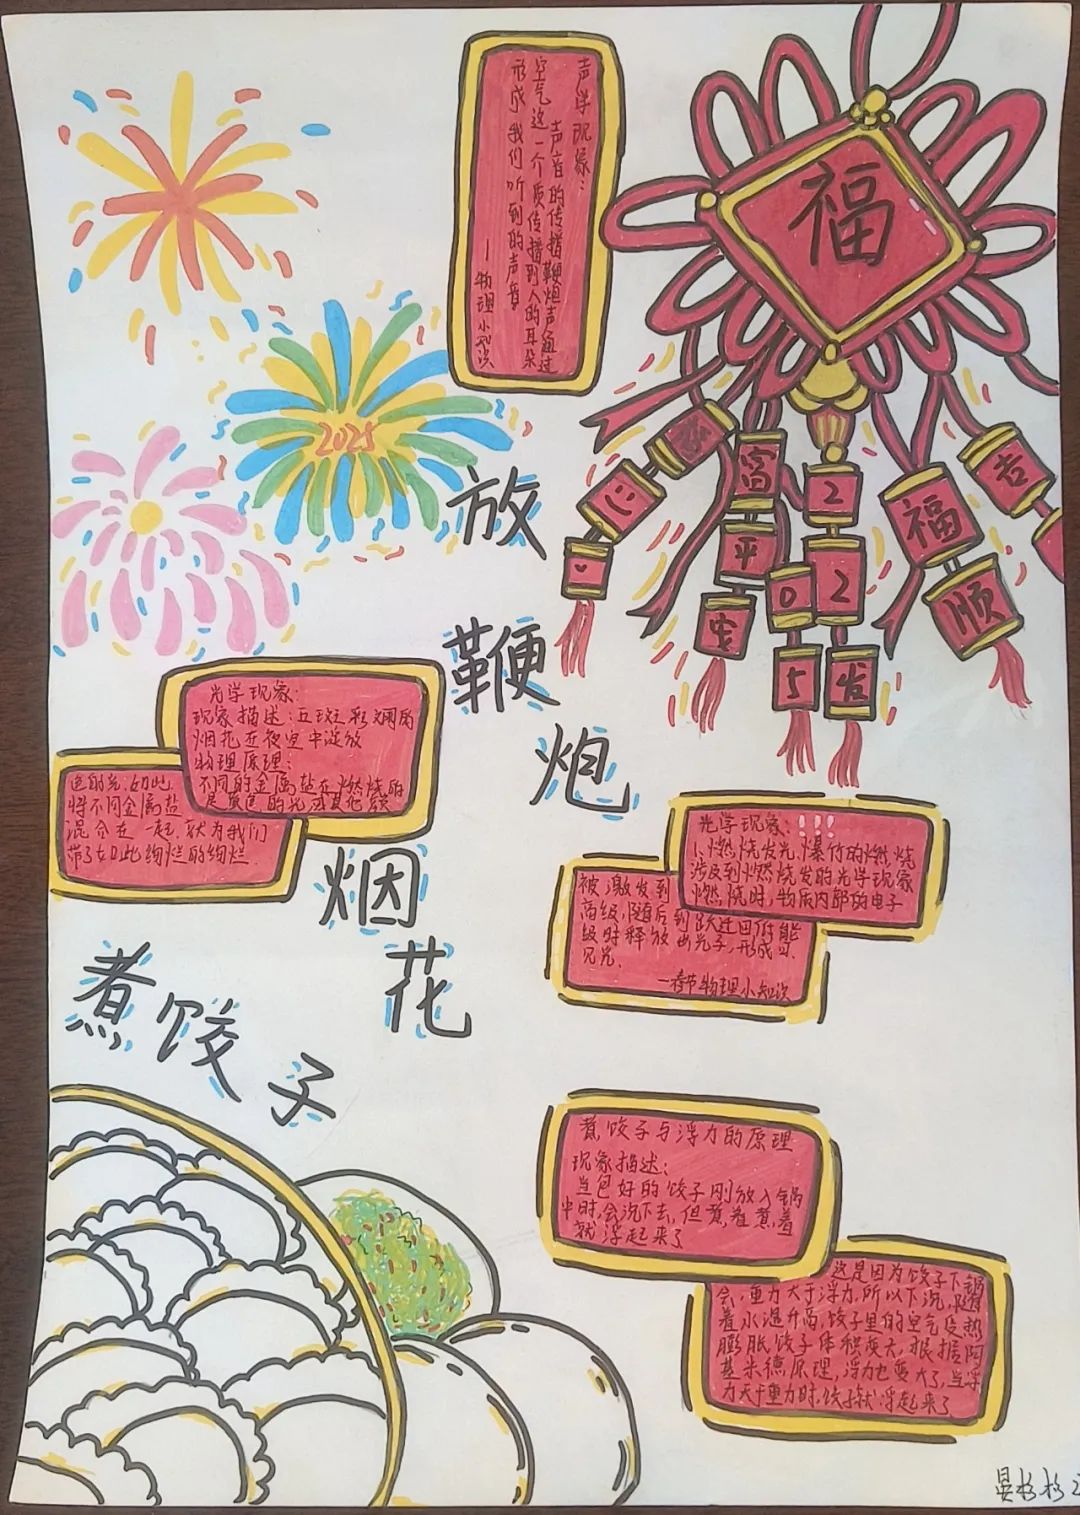 声学现象：
声音的传播鞭炮声通过
空气这一介质传播到人的耳朵
形成我们听到的声音
——物理小知识
福
富
平
安
2
2
0
5
发
福
顺
吉
2025
放
鞭
炮
烟
花
煮饺子
光学现象：
现象描述：五斑彩斓的
烟花在夜空中淀放
物理原理：
不同的金属盐在燃烧的
色的光，如此，
将不同金属盐
混合在一起，就为我们
带了如此绚烂的绚烂.
光学现象：!!!
1、燃烧发光，爆竹的燃烧
涉及到燃烧发的光学现象
燃烧时，物质内部的电子
被激发到
高级，随后到跃迁回低能
级时释放出光子，形成可
见光.
—春节物理小知识
煮饺子与浮力的原理
现象描述：
当包好的饺子刚放入锅
中时，会沉下去，但煮着煮着
就浮起来了
这是因为饺子下锅
会，重力大于浮力，所以下沉，随
着水温升高，饺子里的空气受热
膨胀饺子体积变大，根据阿
基米德原理，浮力也变大了，当浮
力大于重力时，饺子就浮起来了